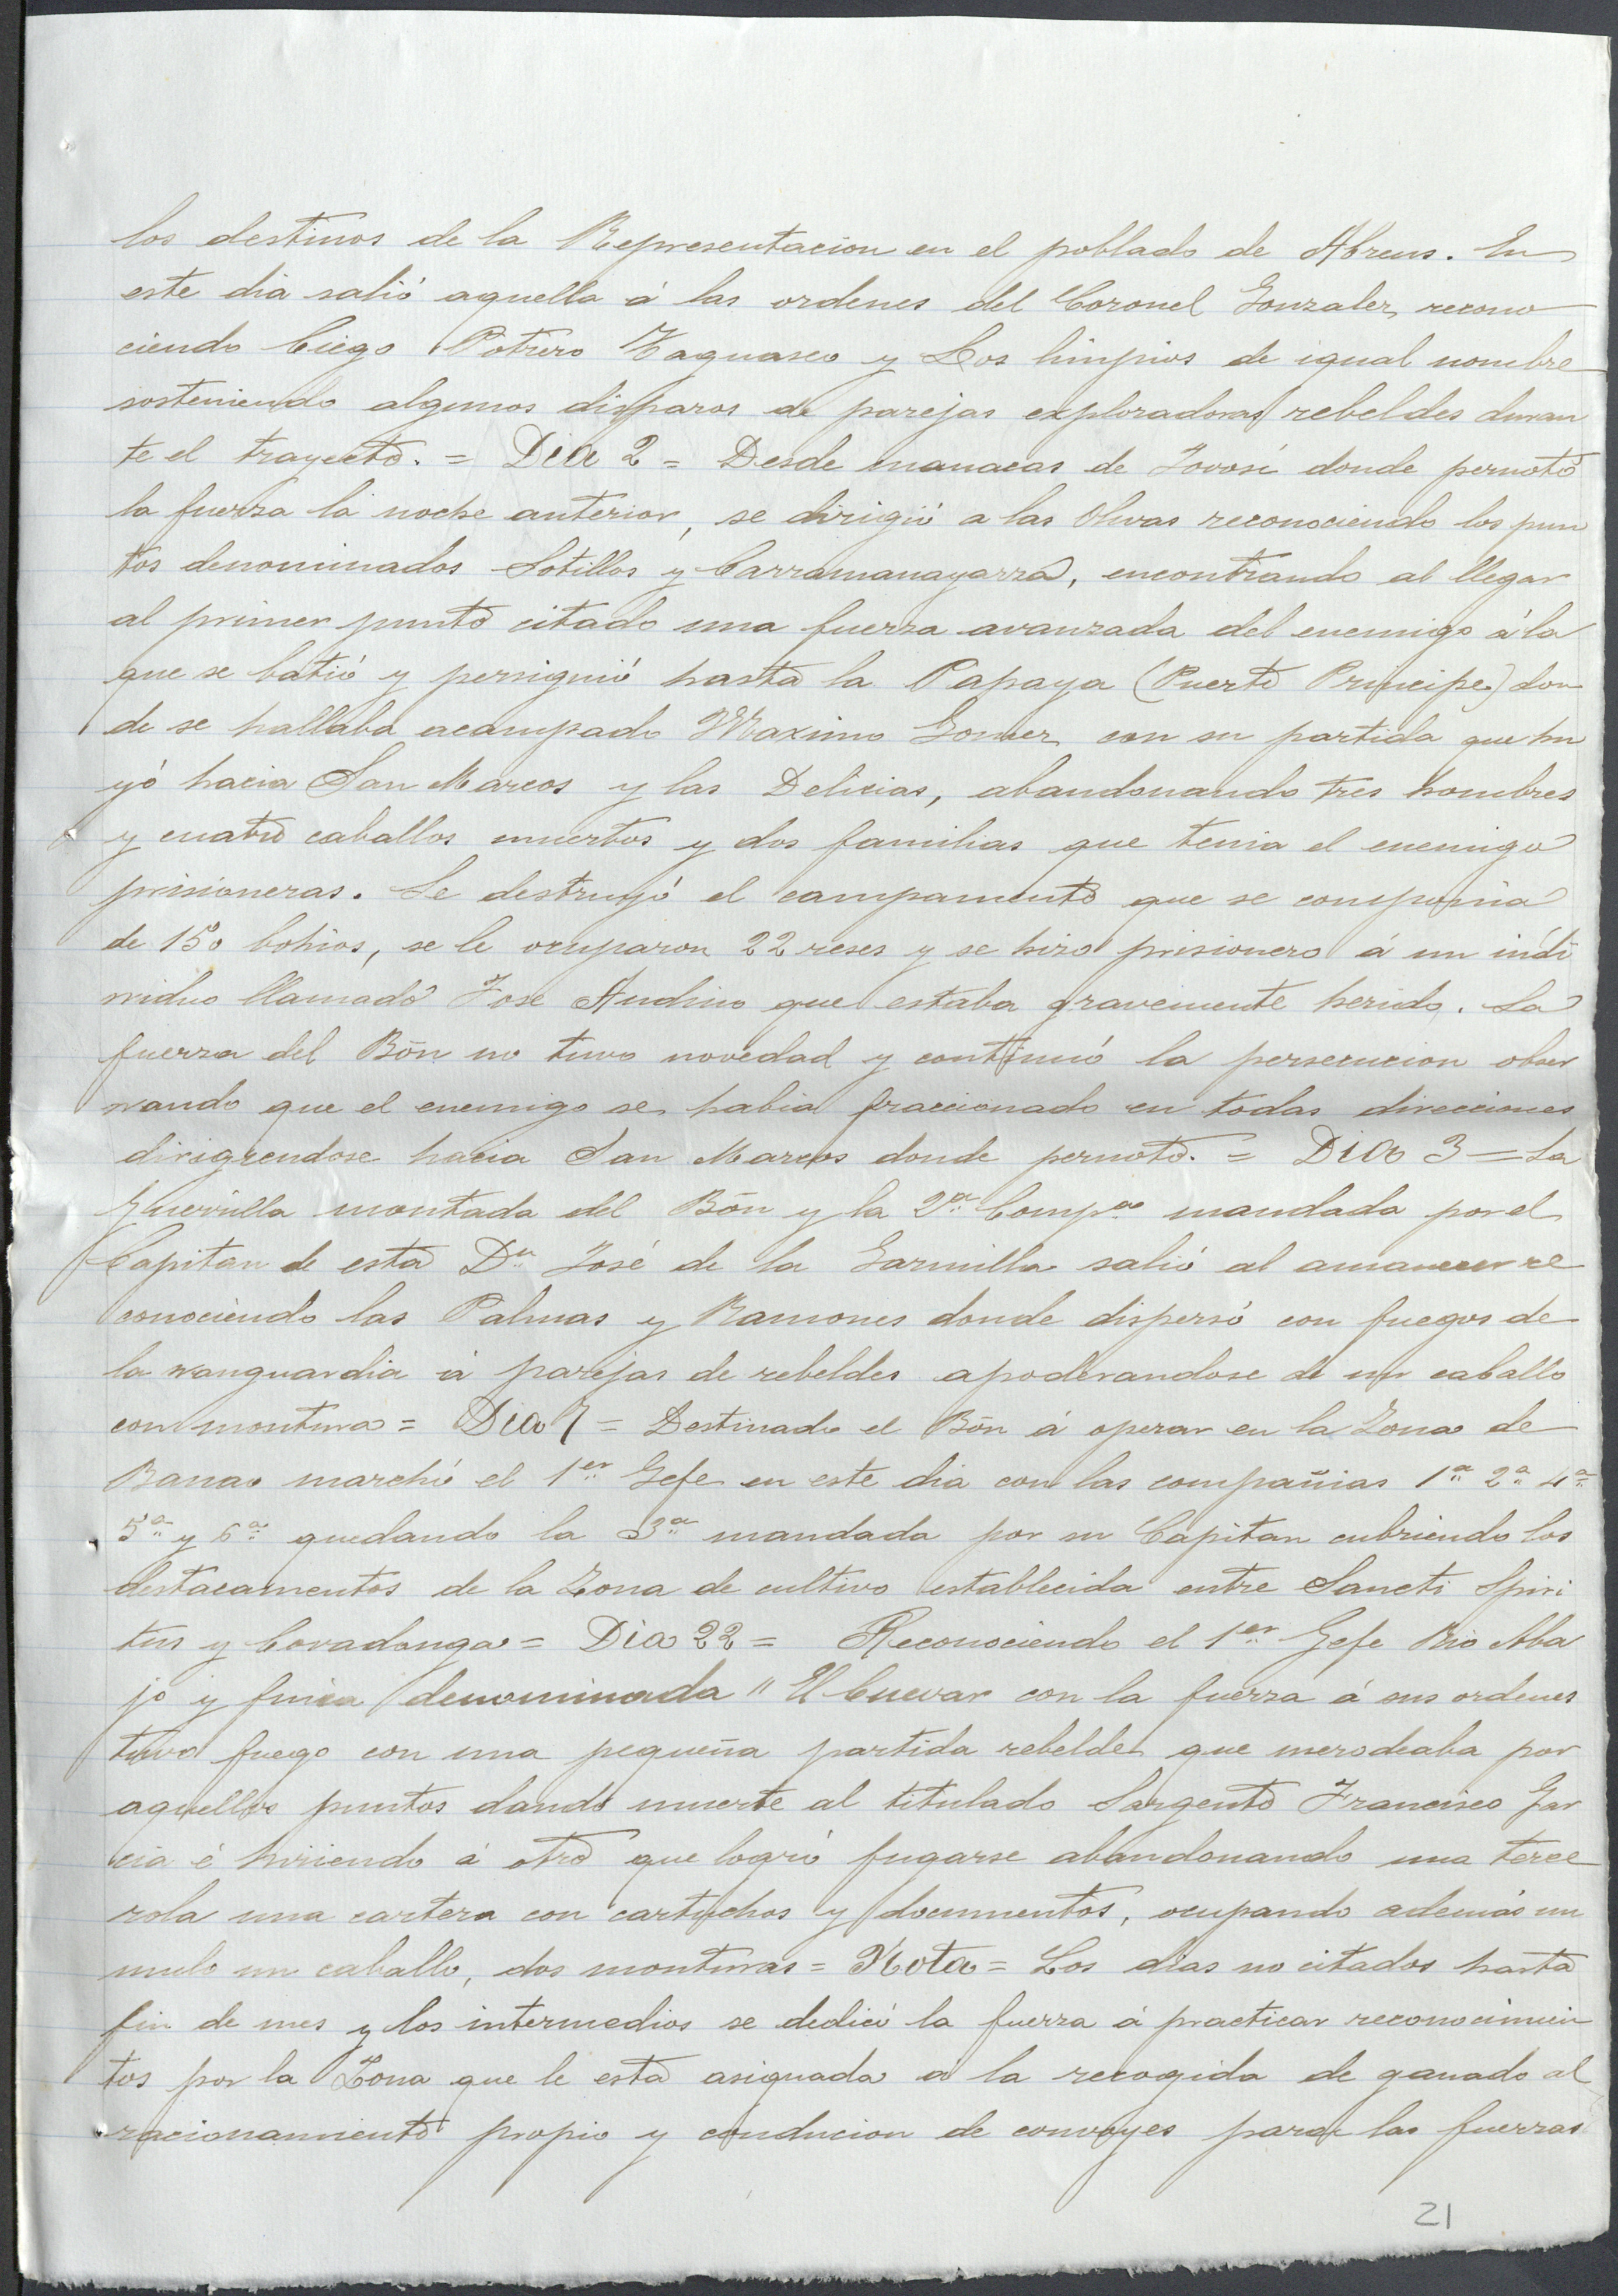 los destinos de la Representacion en el poblado de Abreus. En
este dia salió aquella á las ordenes del Coronel Gonzalez recono
ciendo Ciego Potrero Yaguasco y Los limpios de igual nombre
sosteniendo algunos disparos de parejas exploradoras rebeldes duran
te el trayecto. = Dia 2 = Desde manacas de Jovosi donde pernotó
la fuerza la noche anterior, se dirigió a las Olivas reconociendo los pun
tos denominados Sotillos y Carramanayarra, encontrando al llegar
al primer punto citado una fuerza avanzada del enemigo á la
que se batió y persiguió hasta la Papaya (Puerto Principe) don
de se hallaba acampado Maximo Gomez con su partida que hu
yó hacia San Marcos y las Delicias, abandonando tres hombres
y cuatro caballos muertos y dos familias que tenia el enemigo
prisioneras. Se destruyó el campamento que se componia
de 150 bohios, se le ocuparon 22 reses y se hizo prisionero á un indi
viduo llamado Jose Andino que estaba gravemente herido. La
fuerza del Bōn no tuvo novedad y continuó la persecucion obser
vando que el enemigo se habia fraccionado en todas direcciones
dirigiendose hacia San Marcos donde pernotó. = Dia 3 = La
Guerrilla montada del Bōn y la 2ª Compª mandada por el
Capitan de esta Dn José de la Garmilla salió al amanecer re
conociendo las Palmas y Ramones donde dispersó con fuegos de
la vanguardia á parejas de rebeldes apoderandose de un caballo
con montura = Dia 7 = Destinado el Bōn á operar en la Zona de
Banao marchó el 1er Gefe en este dia con las compañias 1ª 2ª 4ª
5ª y 6ª quedando la 3ª mandada por su Capitan cubriendo los
destacamentos de la Zona de cultivo establecida entre Sancti Spiri
tus y Covadonga = Dia 22 = Reconociendo el 1er Gefe Rio Aba
jo y finca denominada " El Cuevar con la fuerza á sus ordenes
tuvo fuego con una pequeña partida rebelde que merodeaba por
aquellos puntos dando muerte al titulado Sargento Francisco Gar
cia é hiriendo á otro que logró fugarse abandonando una terce
rola una cartera con cartuchos y documentos, ocupando además un
mulo un caballo, dos monturas = Nota = Los dias no citados hasta
fin de mes y los intermedios se dedicó la fuerza á practicar reconocimien
tos por la Zona que le está asignada a la recogida de ganado al
racionamiento propio y conducion de convoyes para las fuerzas
21